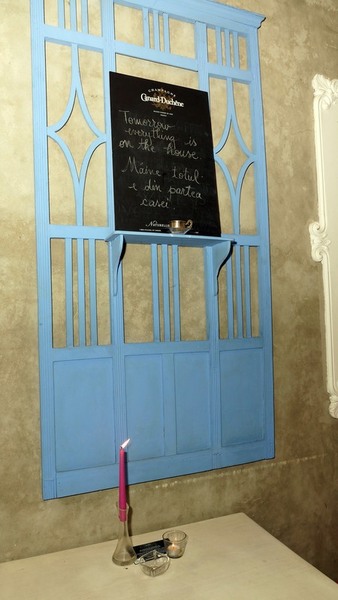 CHAMPAGNE
Canard-Duchêne
Tomorrow
everything is
on the house.
Mâine totul
e din partea
casei.